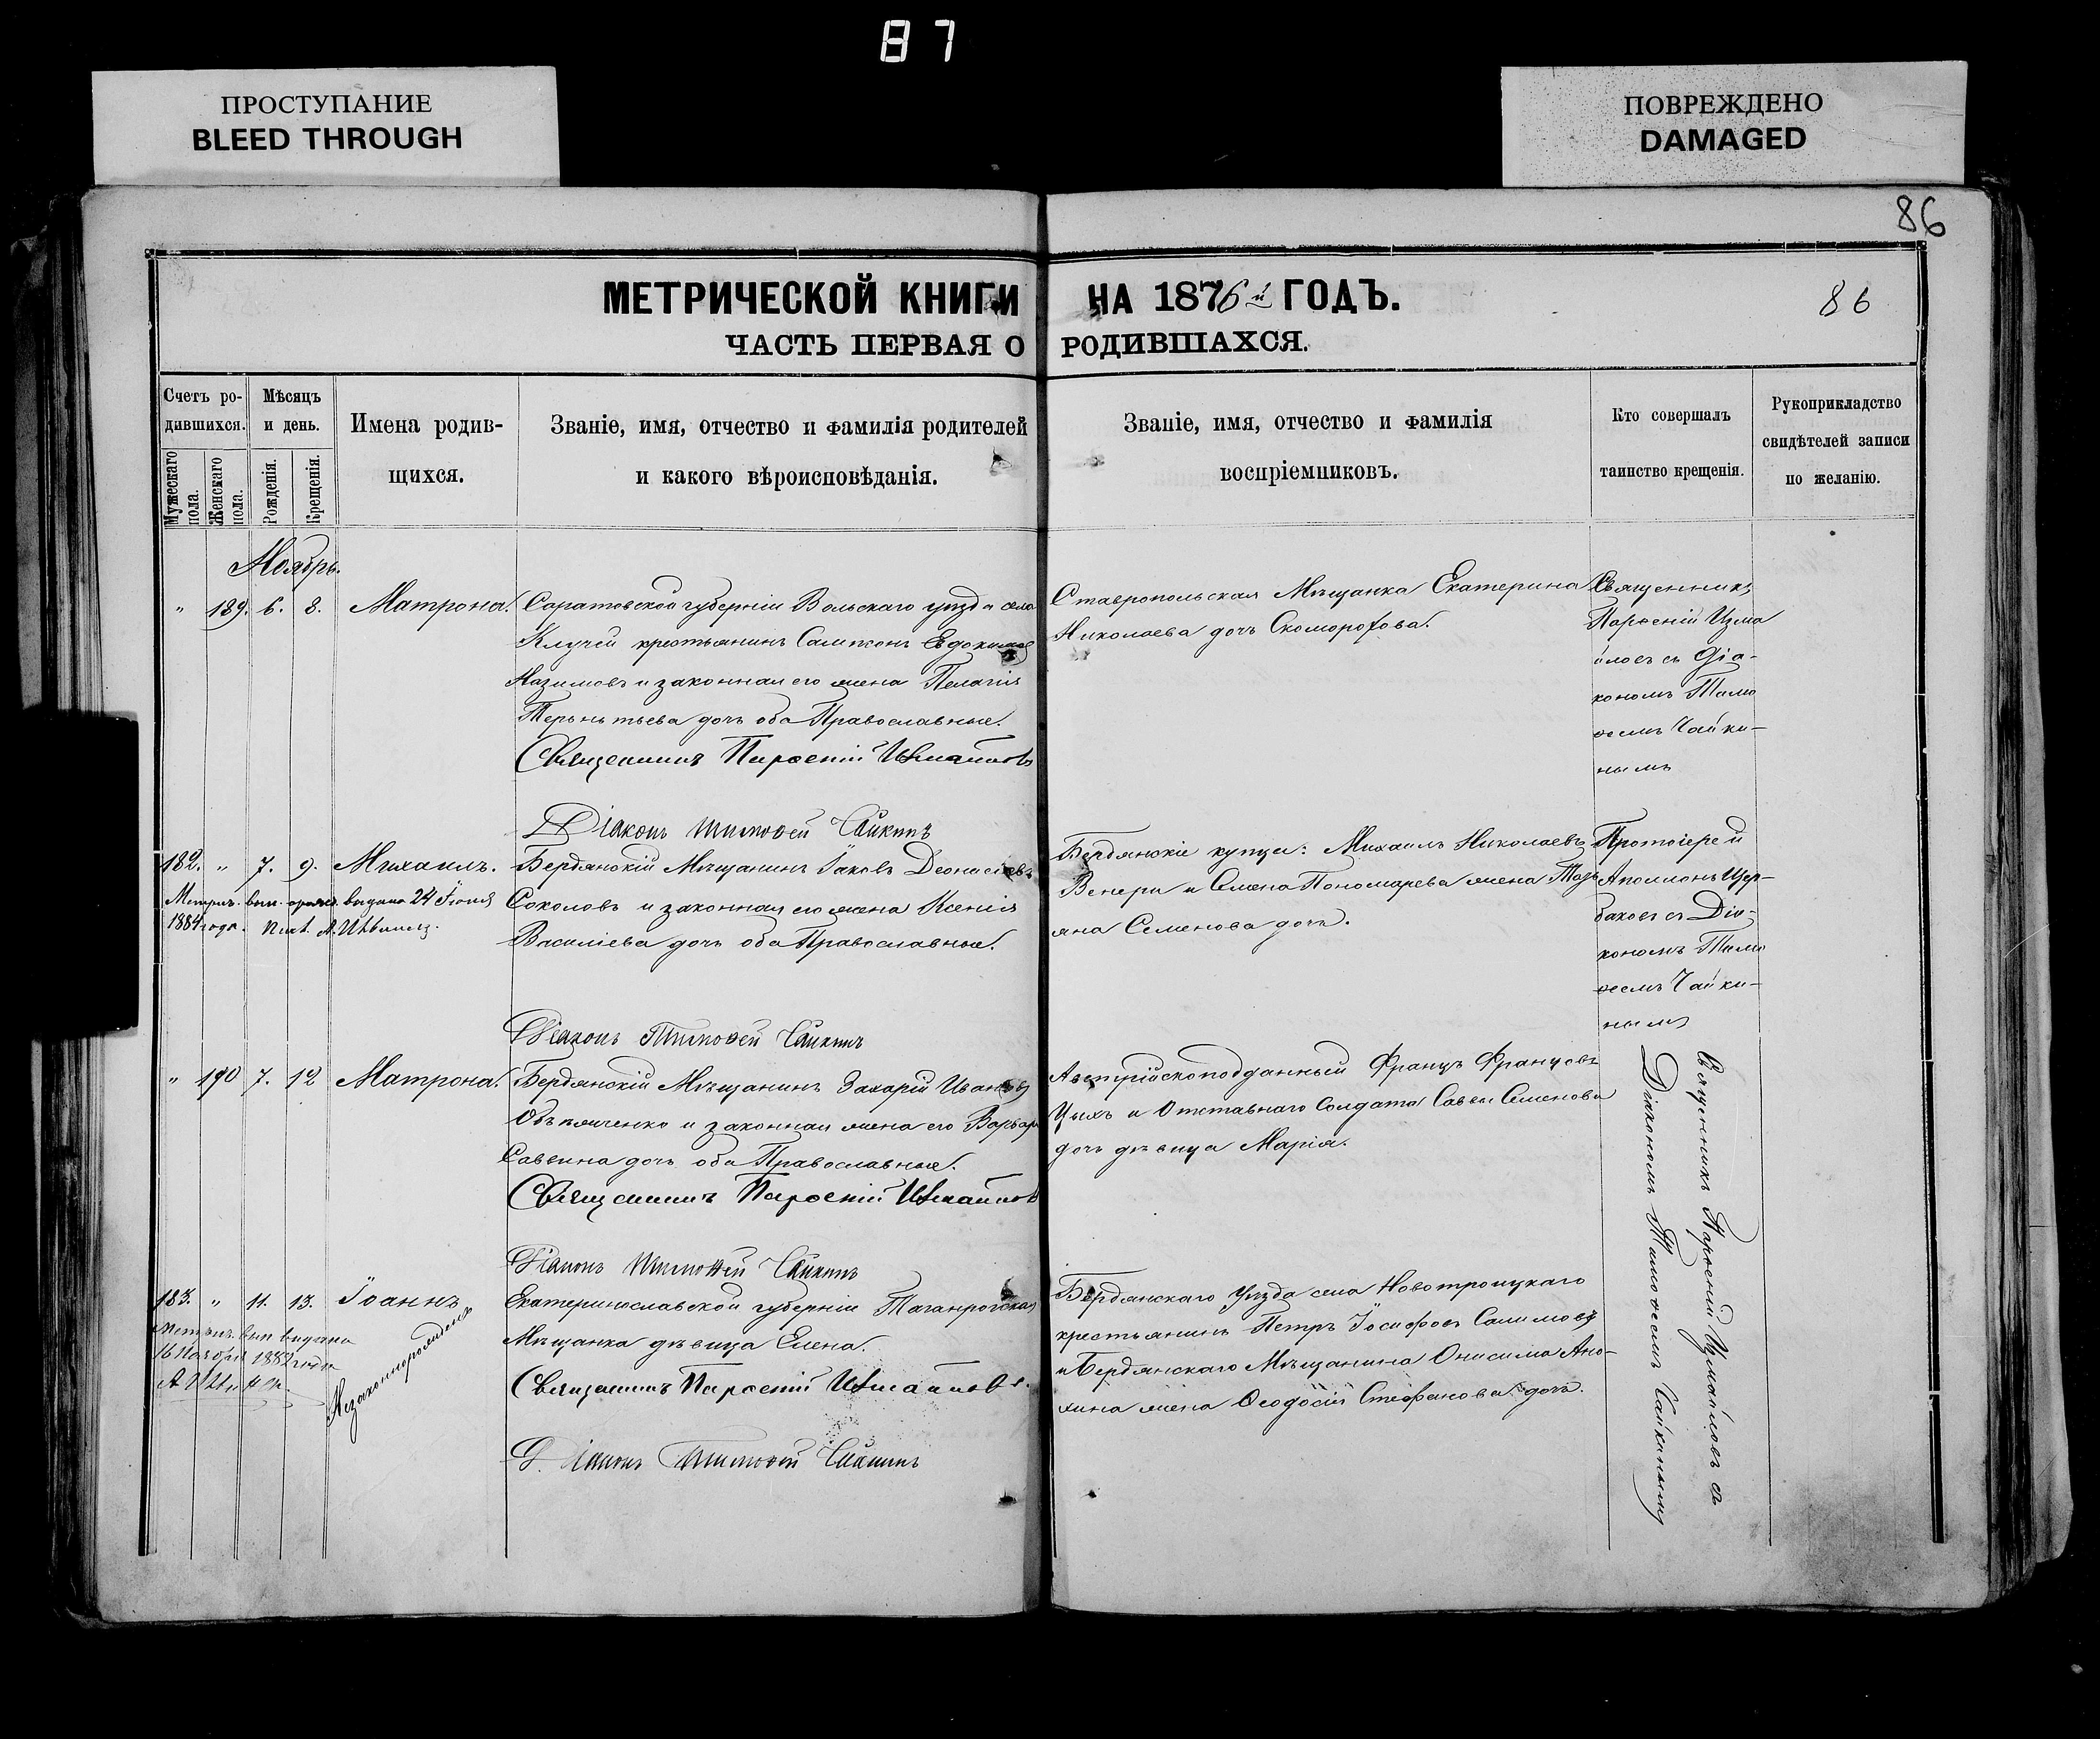 87
ПРОСТУПАНИЕ
BLEED THROUGH
ПОВРЕЖДЕНО
DAMAGED
86
МЕТРИЧЕСКОЙ КНИГИ НА 1876й ГОДЪ.
86
ЧАСТЬ ПЕРВАЯ О РОДИВШАХСЯ.
Счетъ ро-
дившихся.
Мужескаго пола.
Женскаго пола.
Мѣсяцъ
и день.
Рожденія.
Крещенія.
Имена родив-
щихся.
Званіе, имя, отчество и фамилія родителей
и какого вѣроисповѣданія.
Званіе, имя, отчество и фамилія
воспріемниковъ.
Кто совершалъ
таинство крещенія.
Рукоприкладство
свидѣтелей записи
по желанію.
Ноябрь.
" 189. 6. 8. Матрона.
Саратовской губерніи Вольскаго уѣзда села
Ключей крестьянинъ Сампсонъ Евдокимовъ
Назимовъ и законная его жена Пелагія
Терентьева дочь оба Православные.
Священникъ Парѳеній Измаиловъ
Діаконъ Тимоѳей Чайкинъ
Ставропольская Мѣщанка Екатерина
Николаева дочь Скоморохова.
Священникъ
Парѳеній Изма
иловъ съ Діа-
кономъ Тимо
ѳеемъ Чайки-
нымъ
182. " 7. 9. Михаилъ.
Метрич. вып. выдана 24 Іюня
1884 года.
Бердянскій Мѣщанинъ Іаковъ
Соколовъ и законная его жена Ксенія
Василіева дочь оба Православные.
Діаконъ Тимоѳей Чайкинъ
Бердянскіе купцы: Михаилъ Николаевъ
Венери и Семена Пономарева жена Тать
яна Семенова дочь.
Протоіерей
Аполлонъ Щер-
баковъ съ Діа-
кономъ Тимо
ѳеемъ Чайки-
нымъ
" 190 7. 12 Матрона.
Бердянскій Мѣщанинъ Захарій Ивановъ
и законная жена его Варвара
Саввина дочь оба Православные.
Священникъ Парѳеній Измаиловъ
Діаконъ Тимоѳей Чайкинъ
Австрійскоподданный Францъ Францовъ
Цыхъ и Отставнаго Солдата Саввы Семенова
дочь дѣвица Марія.
183. " 11. 13. Іоаннъ
Незаконнорожденъ
Метрич. вып. выдана
16 Ноября 1882 года
Екатеринославской губерніи Таганрогская
Мѣщанка дѣвица Елена.
Священникъ Парѳеній Измаиловъ.
Діаконъ Тимоѳей Чайкинъ
Бердянскаго Уѣзда села Новотроицкаго
крестьянинъ Петръ Іосифовъ Салимовъ
и Бердянскаго Мѣщанина Онисима Ано-
хина жена Ѳеодосія Стефанова дочь.
Священникъ Парѳеній Измаиловъ съ
Діакономъ Тимоѳеемъ Чайкинымъ